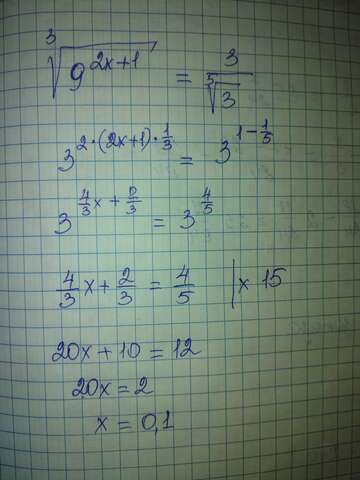 ∛(9^(2x+1)) = 3/⁵√3
3^(2·(2x+1)·1/3) = 3^(1-1/5)
3^(4/3 x + 2/3) = 3^(4/5)
4/3 x + 2/3 = 4/5 | × 15
20x + 10 = 12
20x = 2
x = 0,1